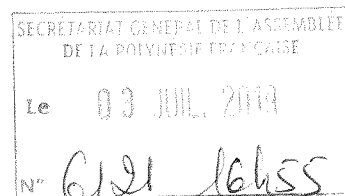 SECRÉTARIAT GENERAL DE L'ASSEMBLÉE
DE LA POLYNESIE FRANÇAISE
Le 03 JUIL. 2019
N° 6121 16h55